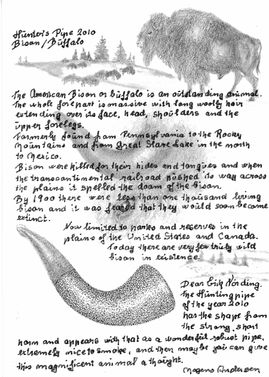 Hunter's Pipe 2010
Bison/Buffalo
The American Bison or Buffalo is an outstanding animal.
The whole forepart is massive with long woolly hair
extending over its face, head, shoulders and the
upper forelegs.
Formerly found from Pennsylvania to the Rocky
Mountains and from Great Slave Lake in the north
to Mexico.
Bison were killed for their hides and tongues and when
the transcontinental railroad pushed its way across
the plains it spelled the doom of the bison.
By 1900 there were less than one thousand living
bison and it was feared that they would soon become
extinct.
Now limited to parks and reserves in the
plains of the United States and Canada.
Today there are very few truly wild
bison in existence.
Dear Erik Nørding.
The Hunting pipe
of the year 2010
has the shape from
the strong, short
horn and appears with that as a wonderful robust pipe,
extremely nice to smoke, and then maybe you can give
this magnificent animal a thought.
Mogens Andersen